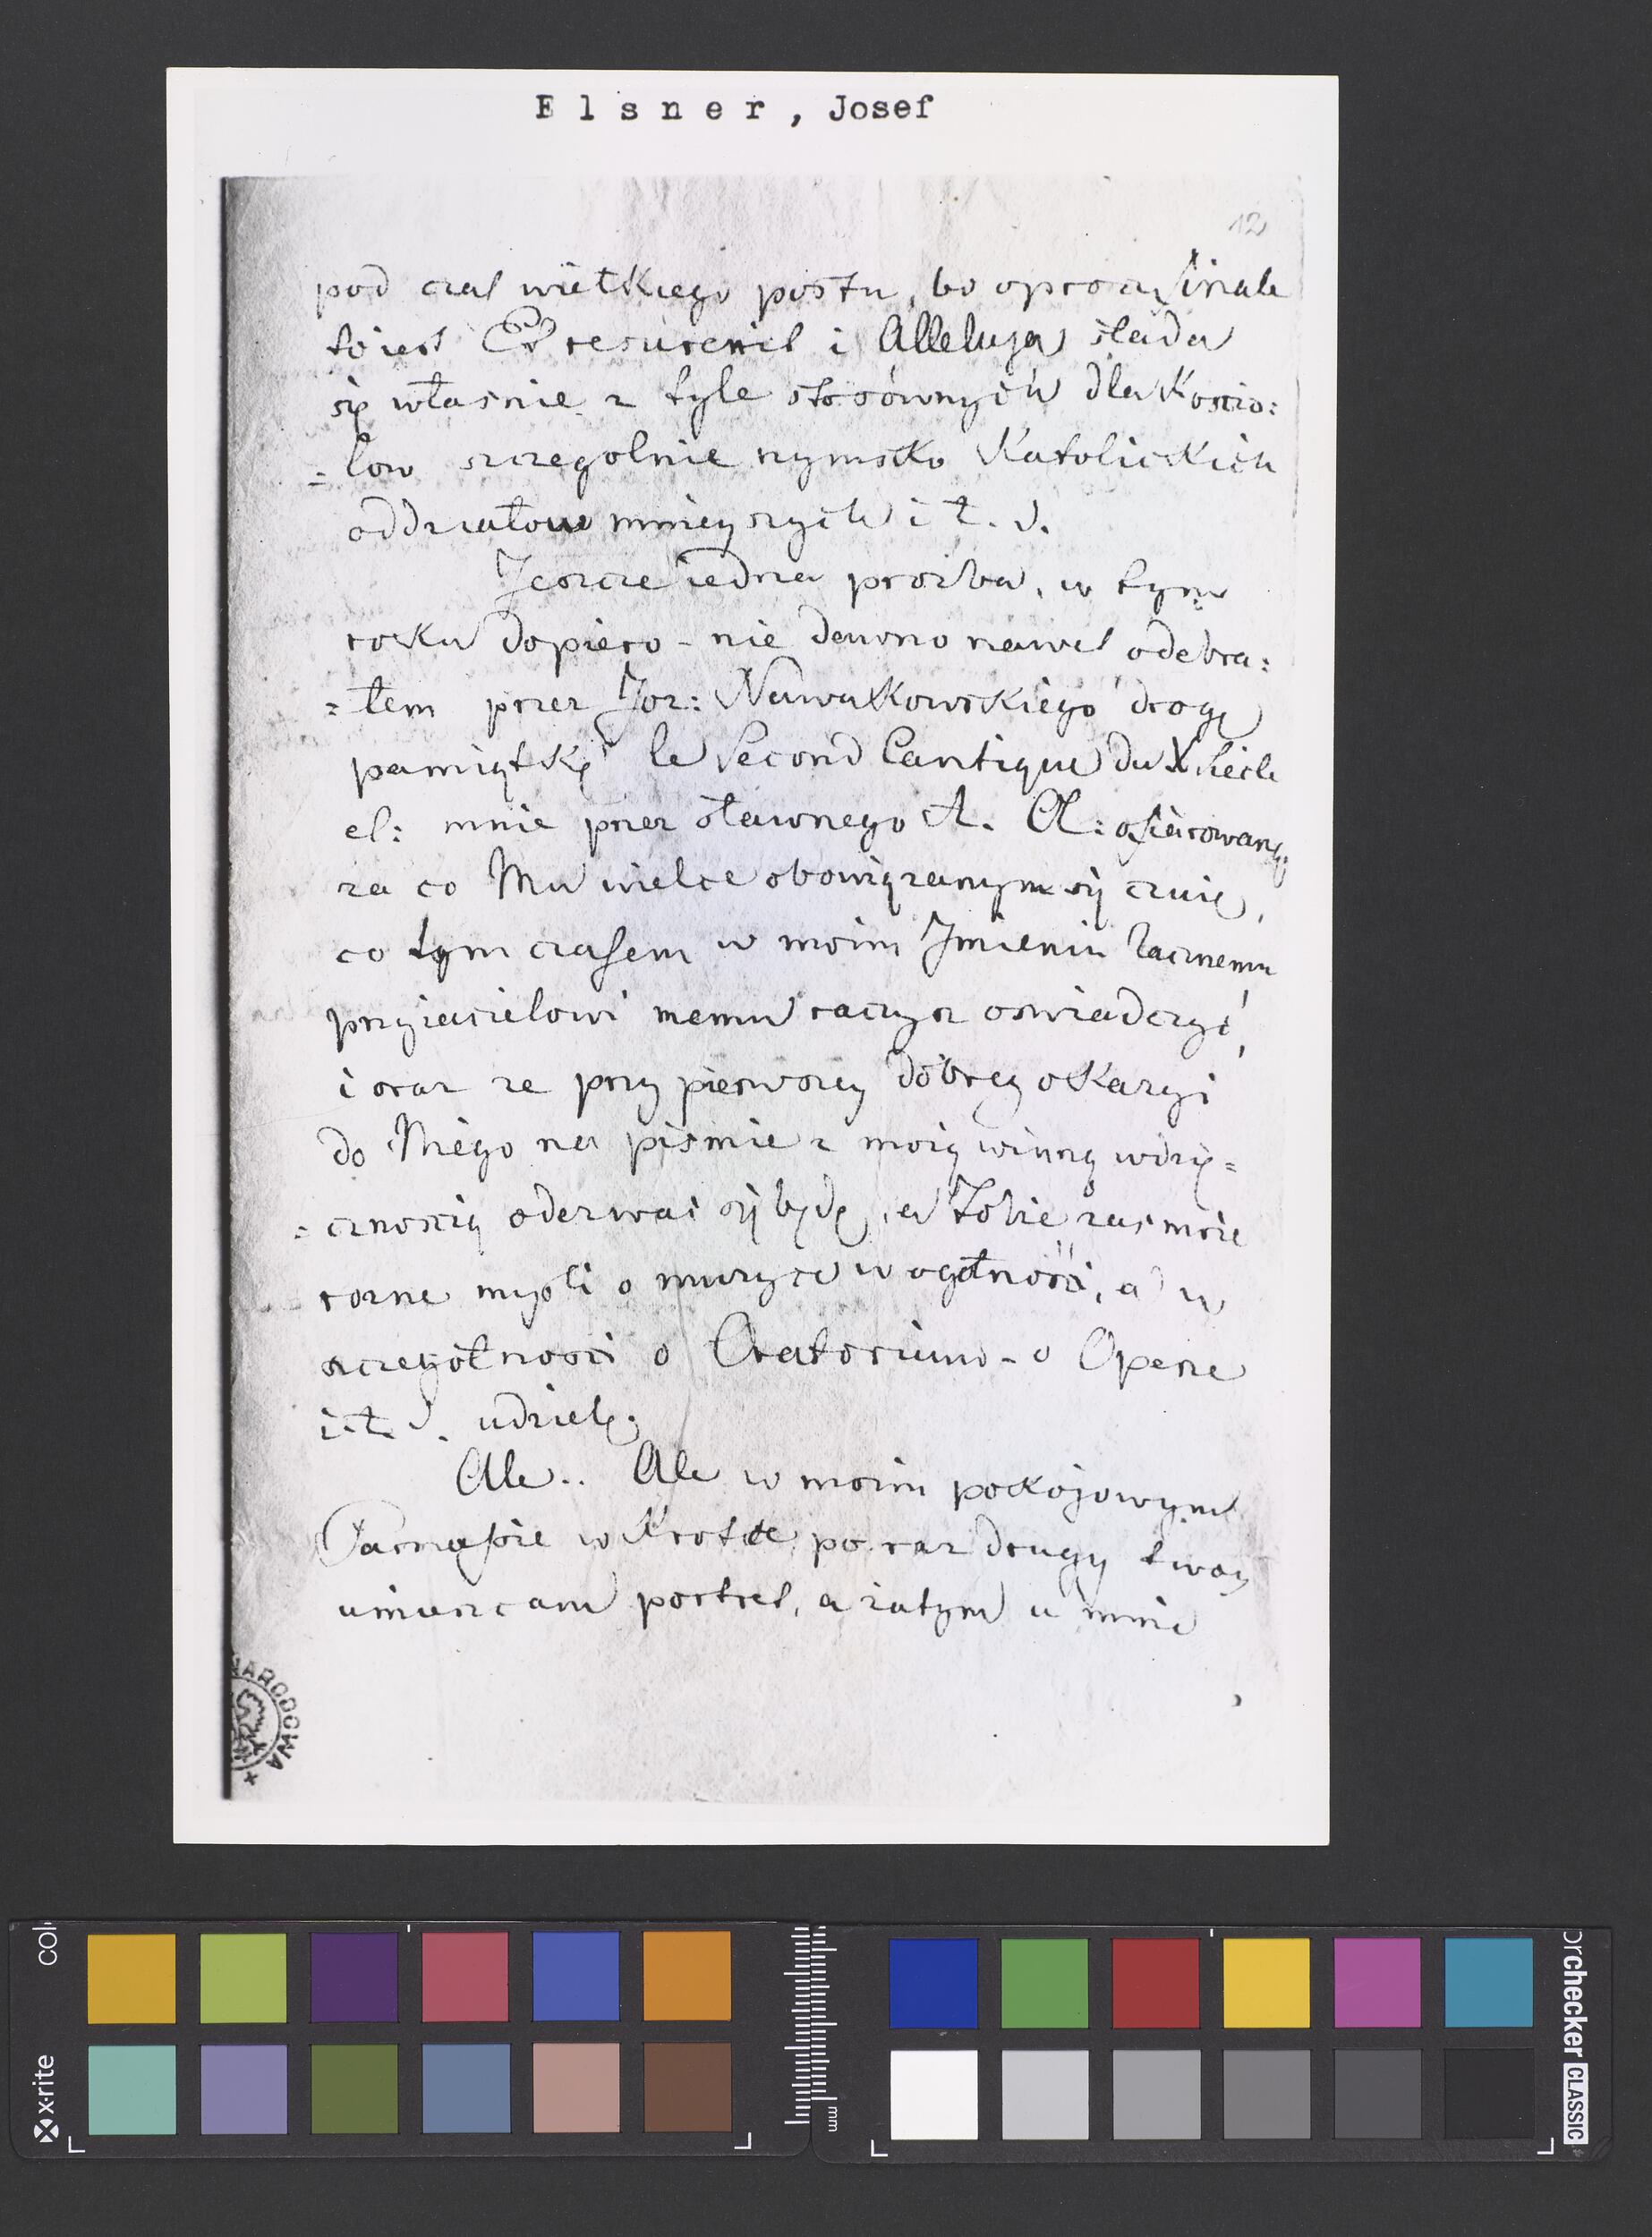 Elsner, Josef
12
pod czas wielkiego postu, bo oprocz finale
to iest Et resurexit i Alleluja sklada
się własnie z tyle stosównych dla Koscio:
=low szczegolnie rzymsko Katolickich
oddziałow mnieyszych i t. d.
Jeszcze iedna prozba, w tym
roku dopiero - nie dawno nawet odebra:
=łem przez Joz: Nawakowskiego drogą
pamiątkę le Second Cantique du X Siecle
et: mnie przez sławnego A. Ch: ofiarowaną,
za co Mu wielce obowiązanym się czuię,
co tym czasem w moim Jmieniu zacnemu
przyiacielowi memu raczysz oswiadczyć,
i oraz ze przy pierwszey dobrey okazyi
do Niego na pismie z moią winną wdzię=
=cznoscią oderwać się będę, a Tobie zas moie
rozne mysli o muzyce w ogólności, a w
szczegółnosci o Oratorium - o Operze
i t. d. udzielę.
Ale.. Ale w moim pokojowym
Parnassie w krotce po raz drugy twoy
umieszcam portret, a zatym u mnie
NARODOWA
x-rite
mm
colorchecker CLASSIC